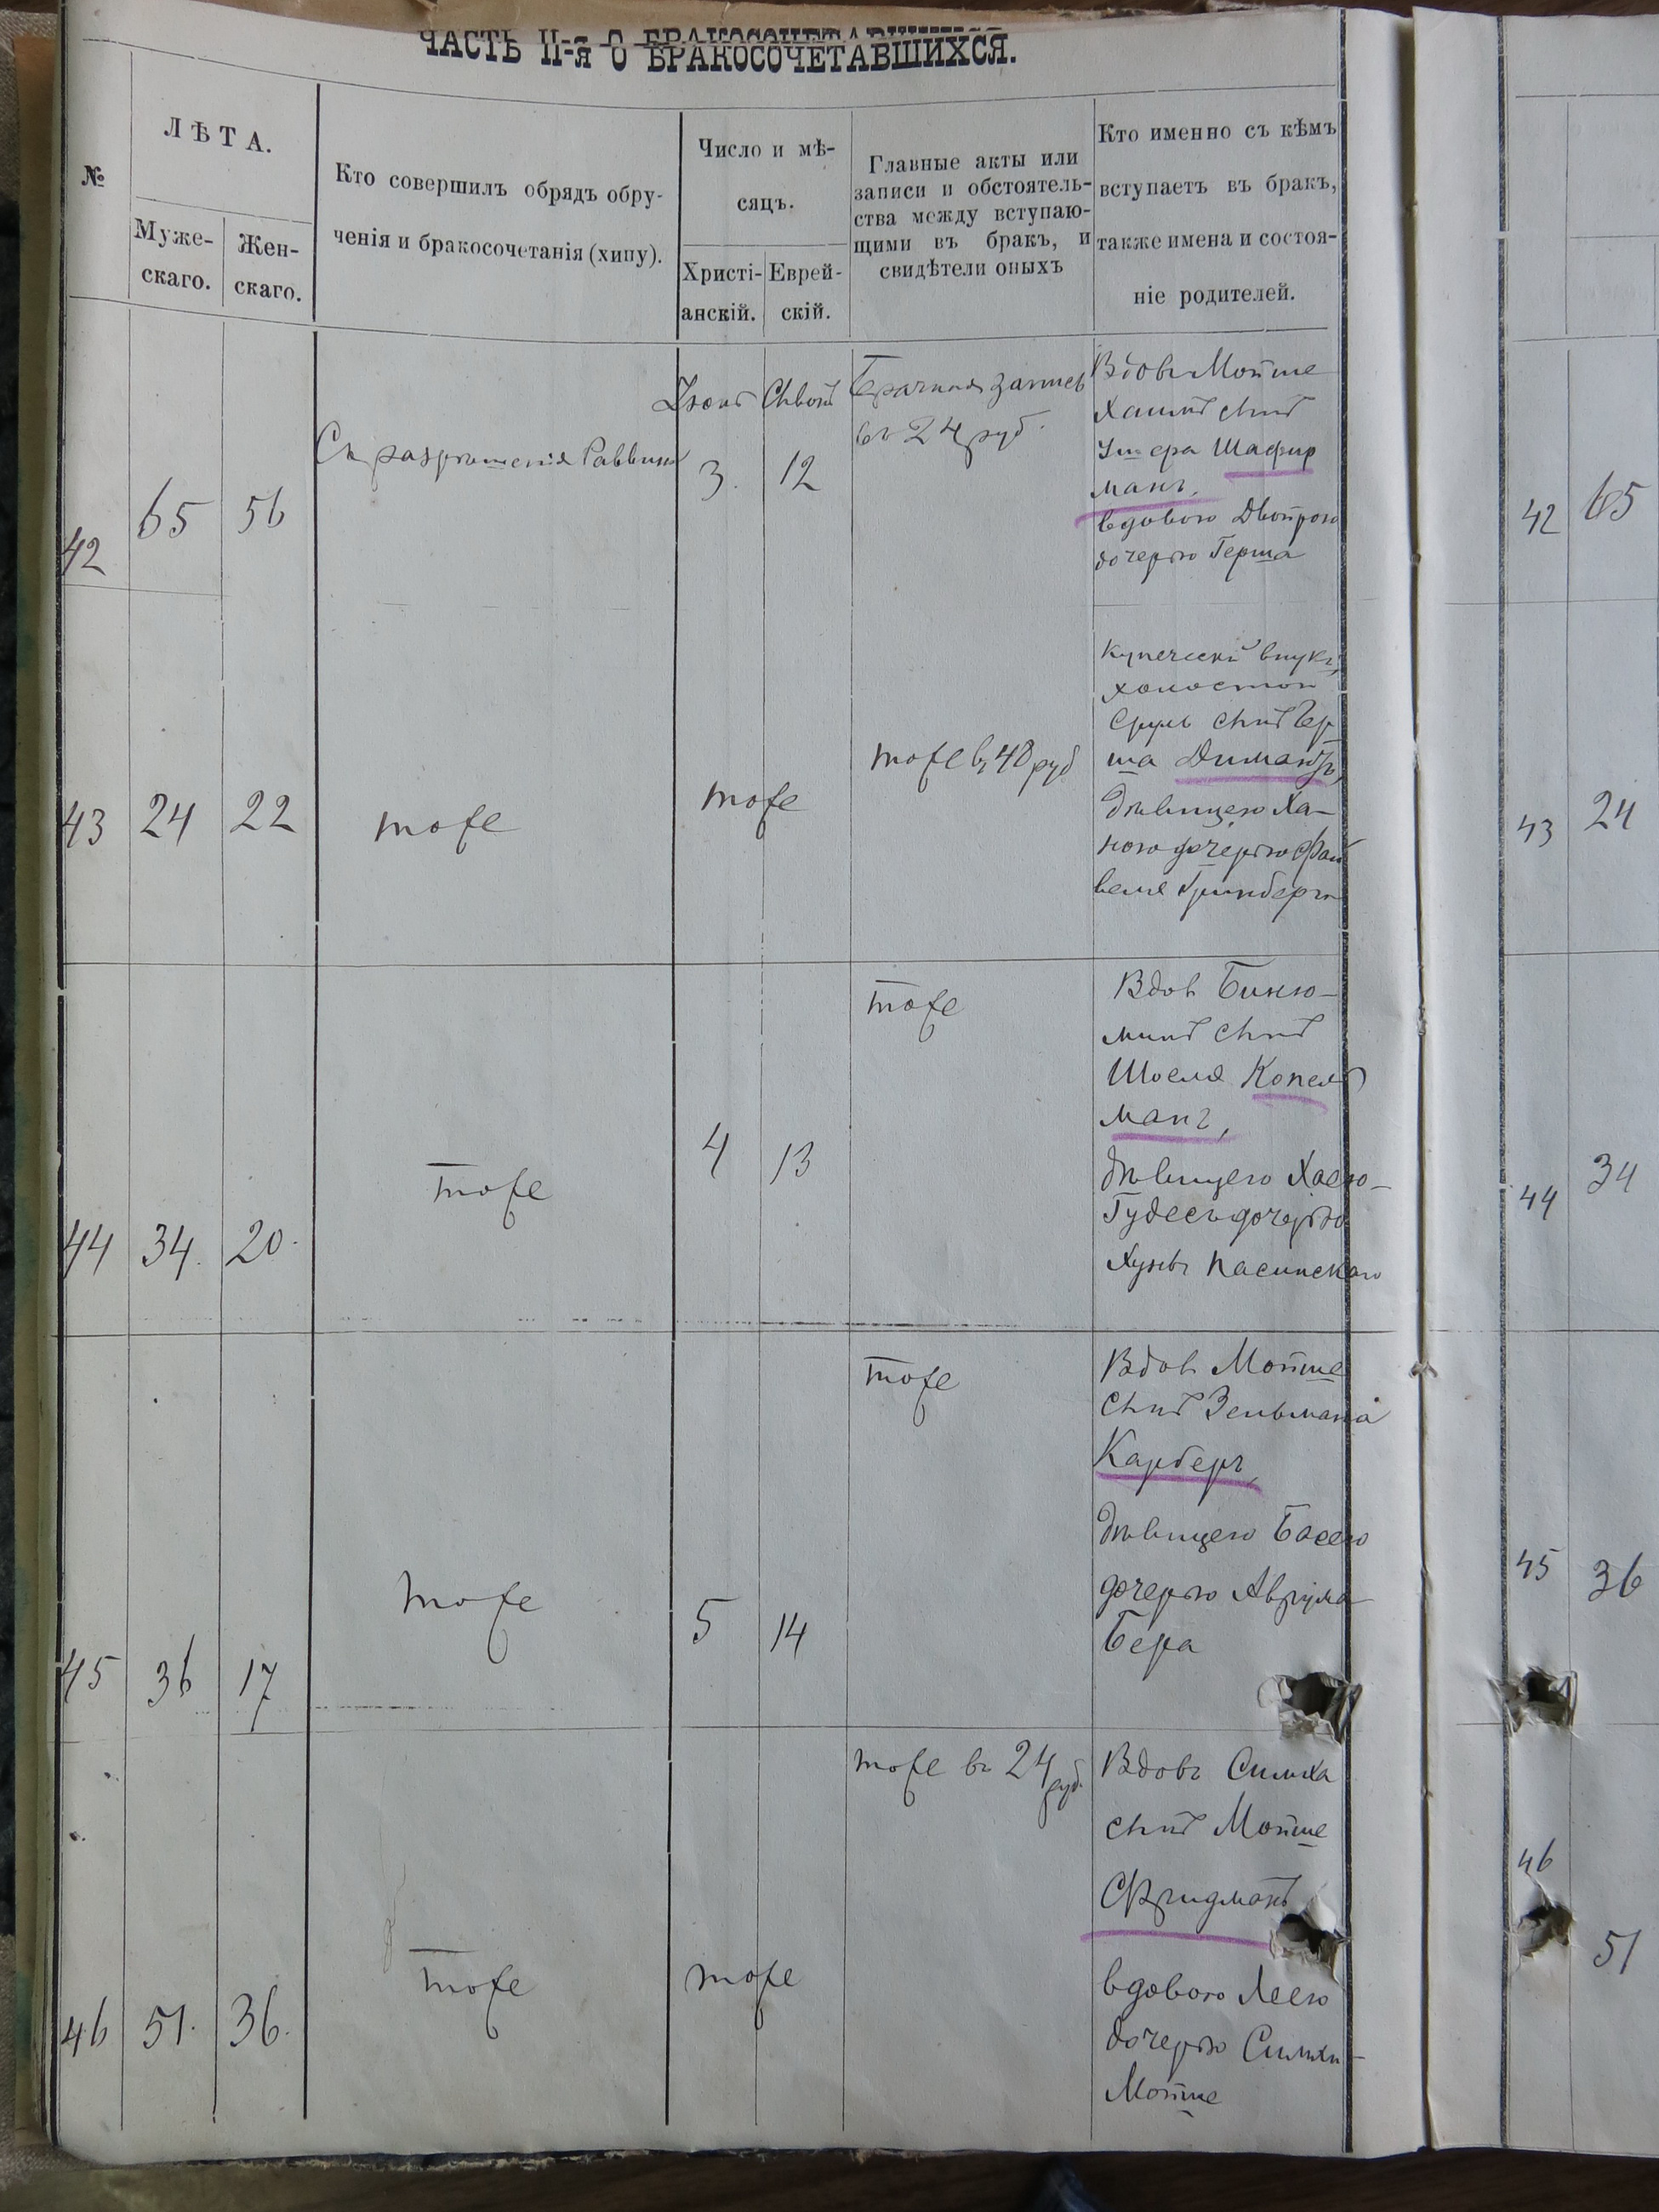 ЧАСТЬ II-я О БРАКОСОЧЕТАВШИХСЯ.
№
ЛѢТА.
Муже-
скаго.
Жен-
скаго.
Кто совершилъ обрядъ обру-
ченія и бракосочетанія (хипу).
Число и мѣ-
сяцъ.
Христі-
анскій.
Еврей-
скій.
Главные акты или
записи и обстоятель-
ства между вступаю-
щими въ бракъ, и
свидѣтели оныхъ
Кто именно съ кѣмъ
вступаетъ въ бракъ,
также имена и состоя-
ніе родителей.
42
65
56
Съ разрѣшенія Раввина
3.
12
Брачная запись
въ 24 руб.
Вдовъ Мойше
Хаимъ сынъ
Ушера Шафир
манъ,
вдовою Двойрою
дочерью Герша
43
24
22
тоже
тоже
тоже въ 48 руб
купеческій внукъ,
холостой
Сруль сынъ Гер
ша Димантъ,
дѣвицею Ха-
ною дочерью Фай
веля Гринберга
44
34.
20.
тоже
4
13
тоже
Вдовъ Биню-
минъ сынъ
Шоеля Копель
манъ,
дѣвицею Хаею-
Гудесъ дочерью
45
36
17
тоже
5
14
тоже
Вдовъ Мойше
сынъ Зельмана
Карберъ,
дѣвицею Басею
дочерью Аврума-
Бера
46
51.
36.
тоже
тоже
тоже въ 24 руб.
Вдовъ Симха
сынъ Мойше
Фридманъ
вдовою Леею
дочерью Симхи-
Мойше
42
65
43
24
44
34
45
36
46
51